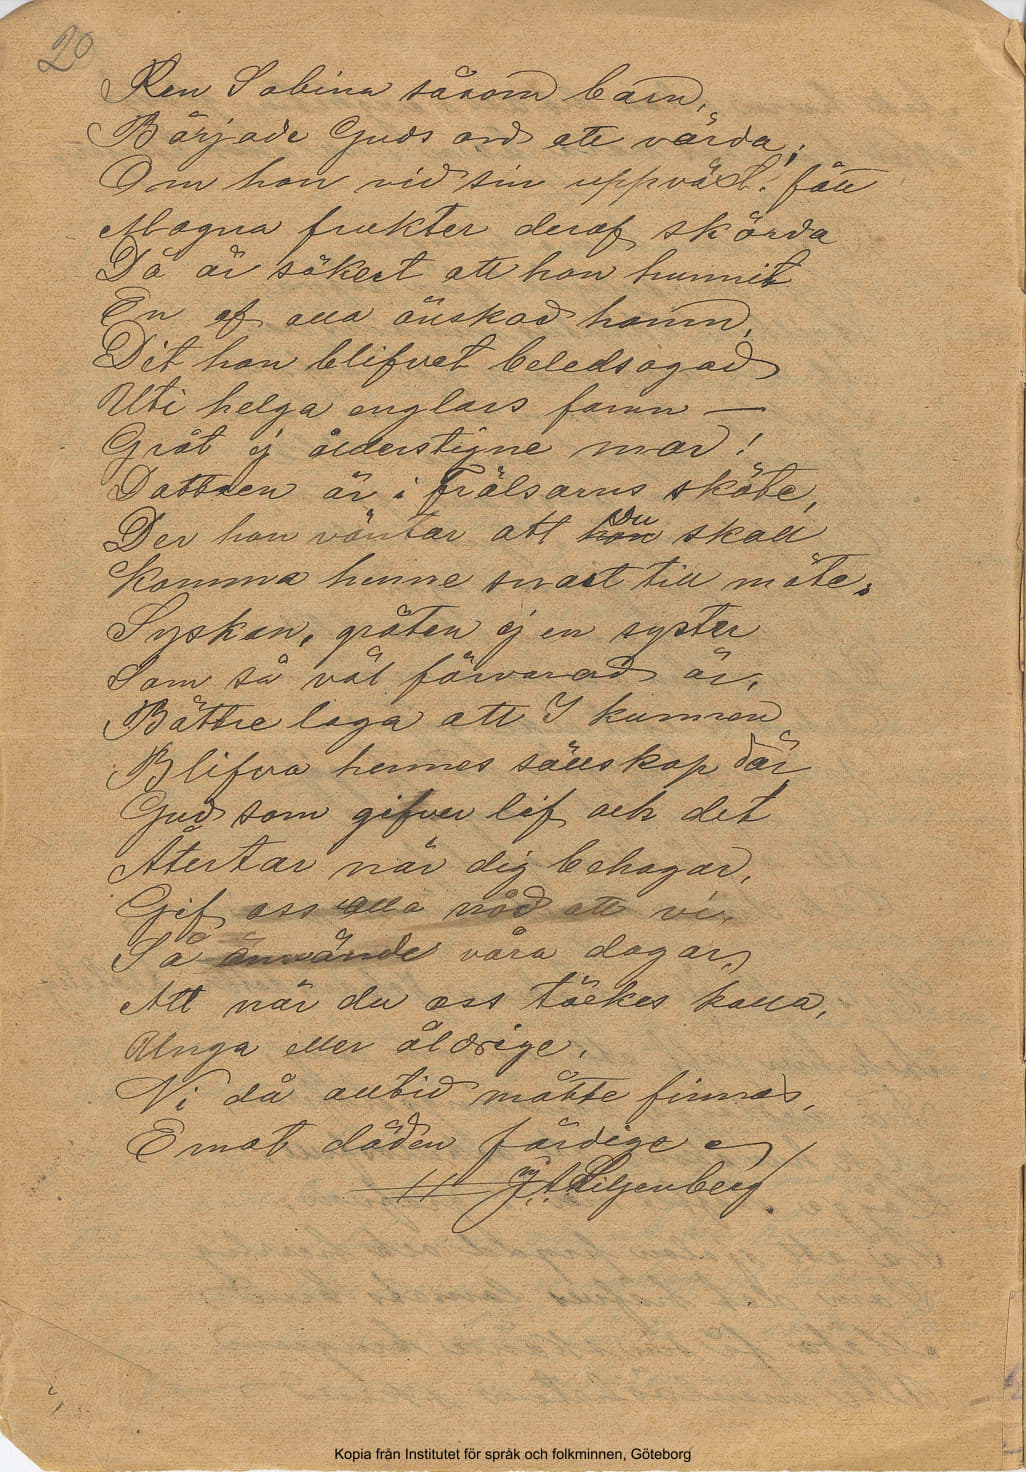 20
Ren Sabina såsom barn,
Började Guds ord att vårda;
Om hon vid sin uppväxt fått
Mogna frukter deraf skörda
Då är säkert att hon hunnit
En af alla önskad hamn,
Dit hon blifvet beledsagad
Uti helga englars famn —
Gråt ej ålderstigne mor!
Dottren är i Frälsarns sköte,
Der hon väntar att hon Du skall
Komma henne snart till möte.
Syskon, gråten ej en syster
Som så väl förvarad är,
Bättre laga att I kunnen
Blifva hennes sällskap där
Gud som gifver lif och det
Återtar när dig behagar,
Gif oss alla nåd att vi
Så använde våra dagar,
Att när du oss täckes kalla,
Unga eller åldrige,
Vi då alltid måtte finnas,
Emot döden färdige
Liljenberg
Kopia från Institutet för språk och folkminnen, Göteborg